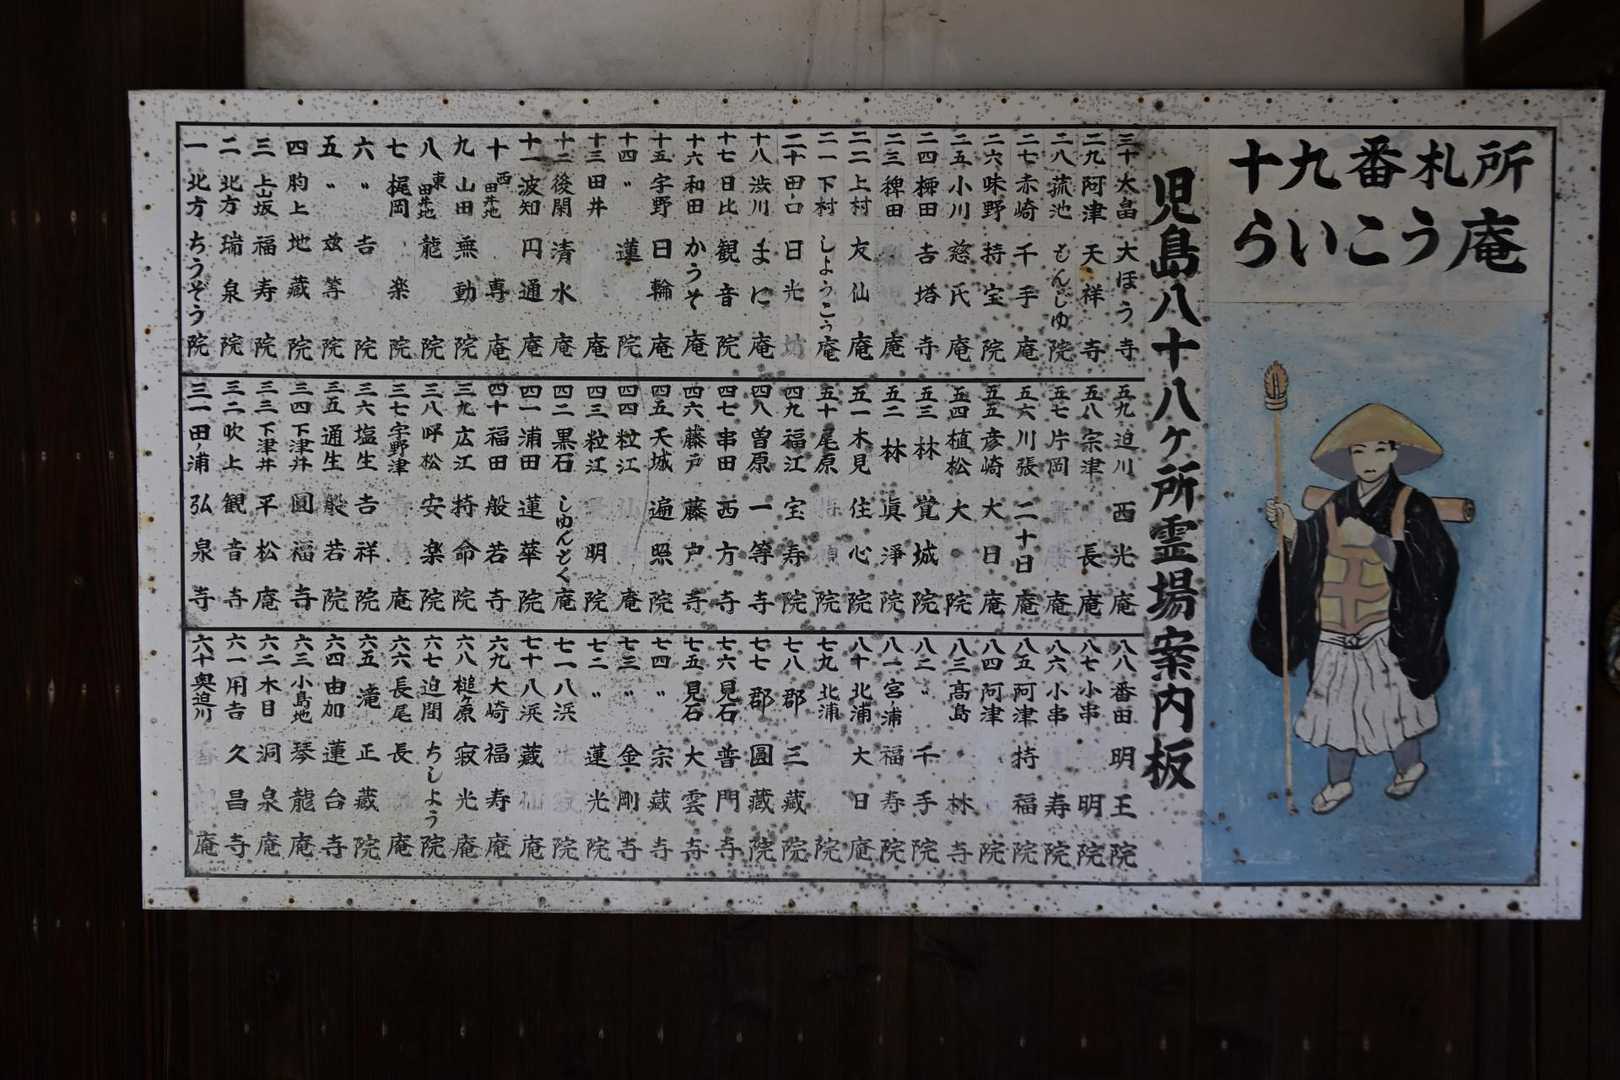 十九番札所
らいこう庵
児島八十八ヶ所霊場案内板
三十 大畠 大ほう寺
二九 阿津 天祥寺
二八 菰池 もんじゆ院
二七 赤崎 千手庵
二六 味野 持宝院
二五 小川 慈氏庵
二四 柳田 吉塔寺
二三 稗田 庵
二二 上村 友仙庵
二一 下村 しようこう庵
二十 田口 日光坊
十八 渋川 よに庵
十七 日比 観音院
十六 和田 かうそ庵
十五 宇野 日輪庵
十四 〃 蓮院
十三 田井 庵
十二 後閑 清水庵
十一 波知 円通庵
十 西田井地 専庵
九 山田 無動院
八 東田井地 龍院
七 梶岡 楽院
六 〃 吉院
五 〃 竝等院
四 胸上 地蔵院
三 上山坂 福寿院
二 北方 瑞泉院
一 北方 ちうぞう院
五九 迫川 西光庵
五八 宗津 長庵
五七 片岡 庵
五六 川張 二十日庵
五五 彦崎 大日庵
五四 植松 大院
五三 林 覚城院
五二 林 眞淨院
五一 木見 住心院
五十 尾原 院
四九 福江 宝寿院
四八 曽原 一等寺
四七 串田 西方寺
四六 藤戸 藤戸寺
四五 天城 遍照院
四四 粒江 庵
四三 粒江 明院
四二 黒石 しゆんとく庵
四一 浦田 蓮華院
四十 福田 般若寺
三九 広江 持命院
三八 呼松 安楽院
三七 宇野津 庵
三六 塩生 吉祥院
三五 通生 般若院
三四 下津井 圓福寺
三三 下津井 平松庵
三二 吹上 観音寺
三一 田浦 弘泉寺
八八 番田 明王院
八七 小串 明院
八六 小串 寿院
八五 阿津 持福院
八四 阿津 院
八三 高島 林寺
八二 〃 千手院
八一 宮浦 福寿院
八十 北浦 大日庵
七九 北浦 院
七八 郡 三蔵院
七七 郡 圓蔵院
七六 見石 普門寺
七五 見石 大雲寺
七四 〃 宗蔵寺
七三 〃 金剛寺
七二 〃 蓮光院
七一 八浜 院
七十 八浜 蔵仙庵
六九 大崎 福寿庵
六八 槌ヶ原 寂光庵
六七 迫間 ちしよう院
六六 長尾 長庵
六五 滝 正蔵院
六四 由加 蓮台寺
六三 小島地 琴龍庵
六二 木目 洞泉庵
六一 用吉 久昌寺
六十 奥迫川 庵